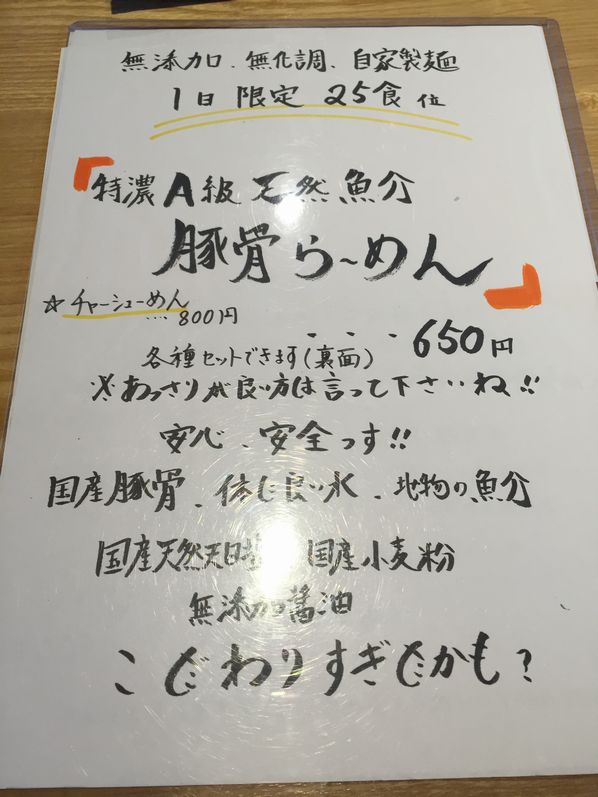 無添加、無化調、自家製麺
1日限定 25食位
「特濃A級天然魚介
豚骨ら〜めん」
☆チャーシューめん
800円
・・・650円
各種セットできます(裏面)
※あっさりが良い方は言って下さいね!!
安心、安全っす!!
国産豚骨、体に良い水、地物の魚介
国産天然天日 国産小麦粉
無添加醤油
こだわりすぎだかも?